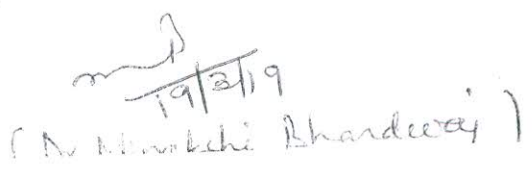 19/3/19
(Dr Minakchi Bhardwaj)